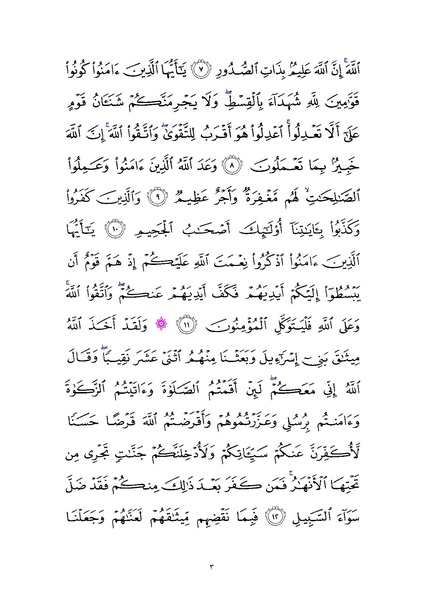 ٱللَّهَۚ إِنَّ ٱللَّهَ عَلِيمُۢ بِذَاتِ ٱلصُّدُورِ ٧ يَـٰٓأَيُّهَا ٱلَّذِينَ ءَامَنُوا۟ كُونُوا۟
قَوَّٰمِينَ لِلَّهِ شُهَدَآءَ بِٱلْقِسْطِۖ وَلَا يَجْرِمَنَّكُمْ شَنَـَٔانُ قَوْمٍ
عَلَىٰٓ أَلَّا تَعْدِلُوا۟ۚ ٱعْدِلُوا۟ هُوَ أَقْرَبُ لِلتَّقْوَىٰۖ وَٱتَّقُوا۟ ٱللَّهَۚ إِنَّ ٱللَّهَ
خَبِيرُۢ بِمَا تَعْمَلُونَ ٨ وَعَدَ ٱللَّهُ ٱلَّذِينَ ءَامَنُوا۟ وَعَمِلُوا۟
ٱلصَّـٰلِحَـٰتِۙ لَهُم مَّغْفِرَةٌ وَأَجْرٌ عَظِيمٌ ٩ وَٱلَّذِينَ كَفَرُوا۟
وَكَذَّبُوا۟ بِـَٔايَـٰتِنَآ أُو۟لَـٰٓئِكَ أَصْحَـٰبُ ٱلْجَحِيمِ ١٠ يَـٰٓأَيُّهَا
ٱلَّذِينَ ءَامَنُوا۟ ٱذْكُرُوا۟ نِعْمَتَ ٱللَّهِ عَلَيْكُمْ إِذْ هَمَّ قَوْمٌ أَن
يَبْسُطُوٓا۟ إِلَيْكُمْ أَيْدِيَهُمْ فَكَفَّ أَيْدِيَهُمْ عَنكُمْۖ وَٱتَّقُوا۟ ٱللَّهَۚ
وَعَلَى ٱللَّهِ فَلْيَتَوَكَّلِ ٱلْمُؤْمِنُونَ ١١ ۞ وَلَقَدْ أَخَذَ ٱللَّهُ
مِيثَـٰقَ بَنِىٓ إِسْرَٰٓءِيلَ وَبَعَثْنَا مِنْهُمُ ٱثْنَىْ عَشَرَ نَقِيبًاۖ وَقَالَ
ٱللَّهُ إِنِّى مَعَكُمْۖ لَئِنْ أَقَمْتُمُ ٱلصَّلَوٰةَ وَءَاتَيْتُمُ ٱلزَّكَوٰةَ
وَءَامَنتُم بِرُسُلِى وَعَزَّرْتُمُوهُمْ وَأَقْرَضْتُمُ ٱللَّهَ قَرْضًا حَسَنًا
لَّأُكَفِّرَنَّ عَنكُمْ سَيِّـَٔاتِكُمْ وَلَأُدْخِلَنَّكُمْ جَنَّـٰتٍ تَجْرِى مِن
تَحْتِهَا ٱلْأَنْهَـٰرُۚ فَمَن كَفَرَ بَعْدَ ذَٰلِكَ مِنكُمْ فَقَدْ ضَلَّ
سَوَآءَ ٱلسَّبِيلِ ١٢ فَبِمَا نَقْضِهِم مِّيثَـٰقَهُمْ لَعَنَّـٰهُمْ وَجَعَلْنَا
٣